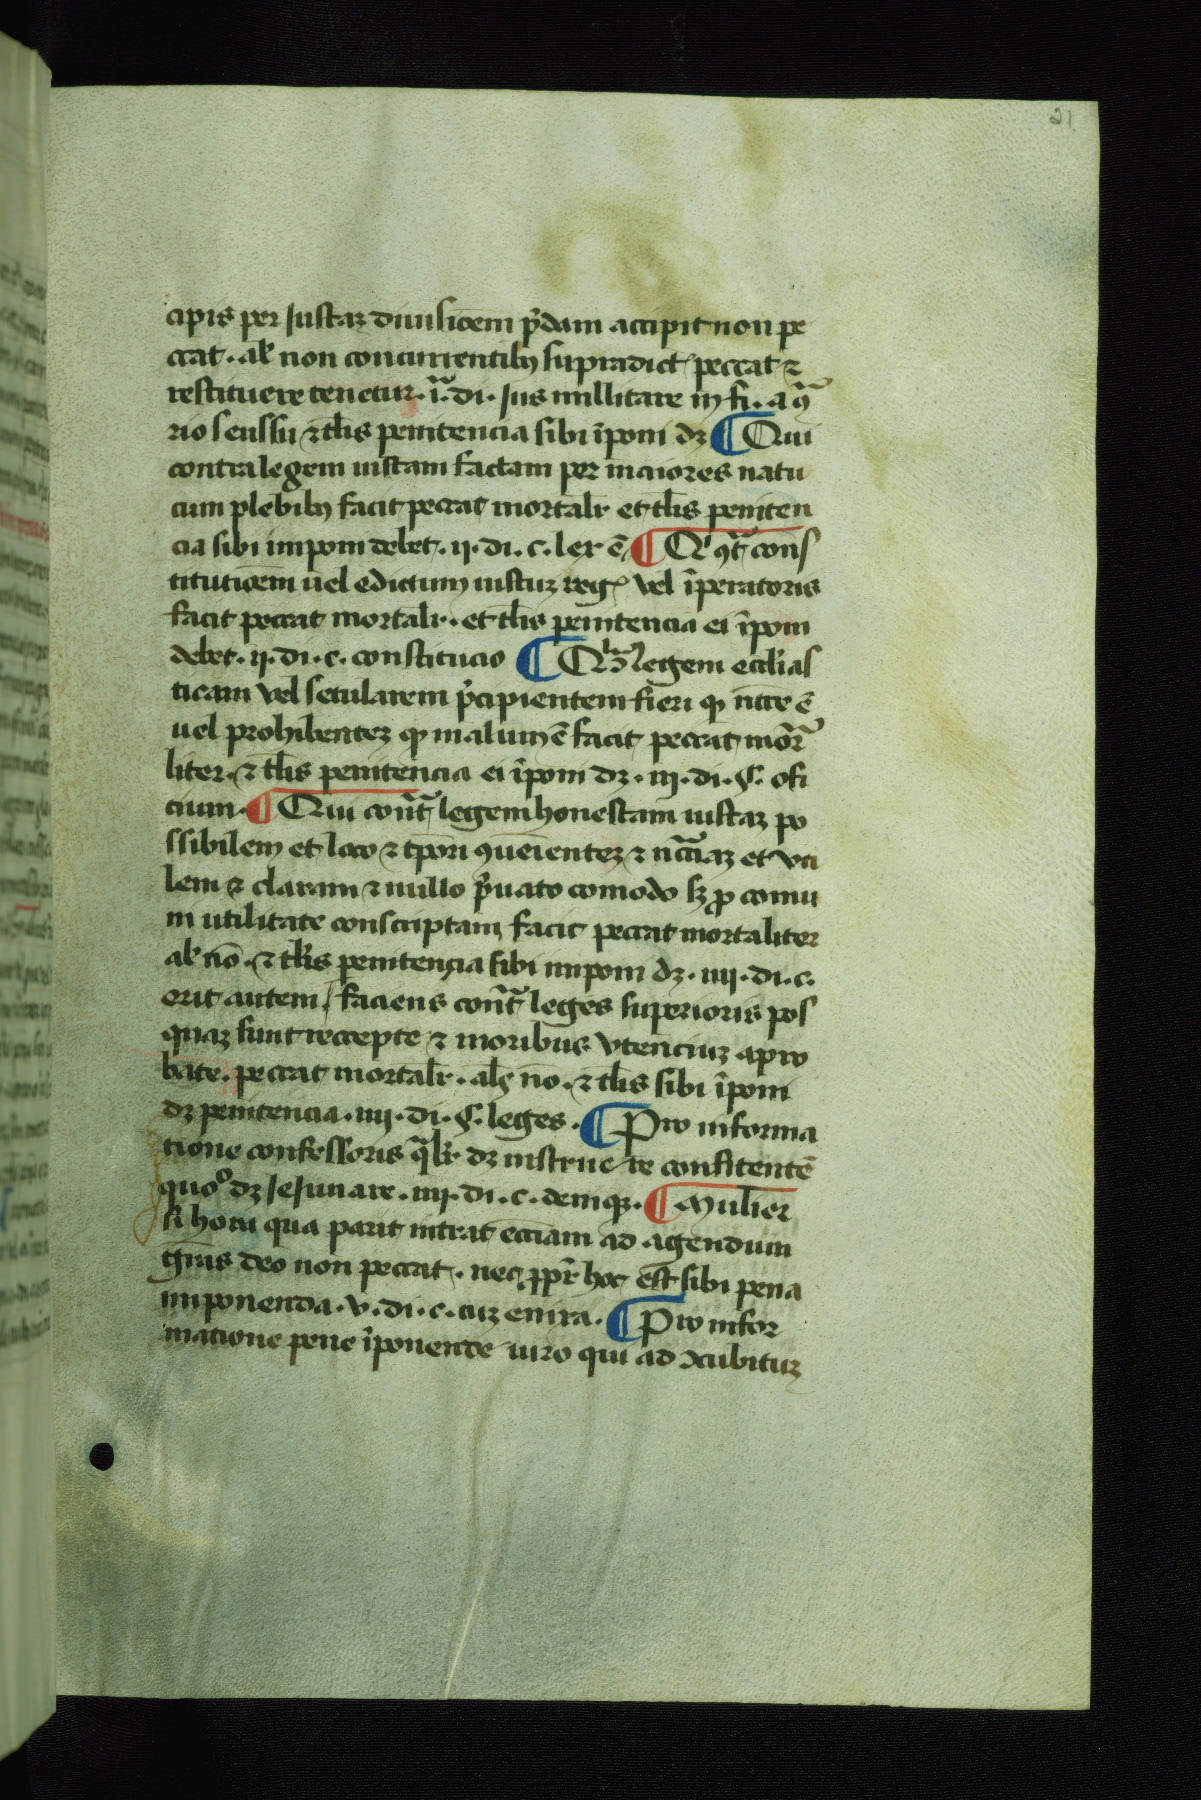 21
cipis per Justaz diuisicēm p̄dam accipit non pe
ccat · al' non concurrentibꝫ supradict' peccat ⁊
restituere tenetur · i͞ᵃ · di · Jus millitare in fi · a q͞
rio senssu ⁊ tl̄is penitencia sibi īponi dꝫ ¶ Qui
contra legem iustam factam per maiores natu
cum plebibꝫ facit peccat mortal'r et tl̄is peniten
cia sibi imponi debet · ii · di · c · lex ē ¶ Qⁱ ꝯt͞ᵃ cons
titutiōem uel edictum iustuz reg' vel īperatoris
facit peccat mortal'r · et tl̄is penitencia ei īponi
debet · ii · di · c · constitucio ¶ legem eccl'ias
ticam vel secularem p̄cipientem fieri qꝫ ncc̄e ē
uel prohibentez qꝫ malum ē facit peccat mor͞ᵃ
liter · ⁊ tl̄is penitencia ei īponi dꝫ · iii · di · §· ofi
cium · ¶ Qui cont͞ᵃ legem honestam iustaz po
ssibilem et loco ⁊ tp̄ori ꝯueientez ⁊ nc̄c͞iaz et vti
lem ⁊ claram ⁊ nullo p̄uato comodo sꝫ ꝓ comu
ni utilitate conscriptam facit peccat mortaliter
al' nō · ⁊ tl̄is penitencia sibi imponi dꝫ · iiii · di · c ·
erit autem / faciens cont͞ᵃ leges superioris pos
quaz sunt reccepte ⁊ moribus vtenciuz apro
bate · peccat mortal'r · als nō · ⁊ tl̄is sibi īponi
dꝫ penitencia · iiii · di · §· leges · ¶ Pro informa
tione confessoris q͞ᵃl'r dꝫ instruere confitentē
quoᵒ dꝫ Jejunare · iiii · di · c · deniqꝫ · ¶ Mulier
si hora qua parit intrat ecc̄iam ad agendum
gr̄as deo non peccat · nec ꝓp̄r hoc est sibi pena
imponenda · v · di · c · cuz enixa · ¶ Pro infor
matione pene īponende uiro qui ad ꝯcubituz